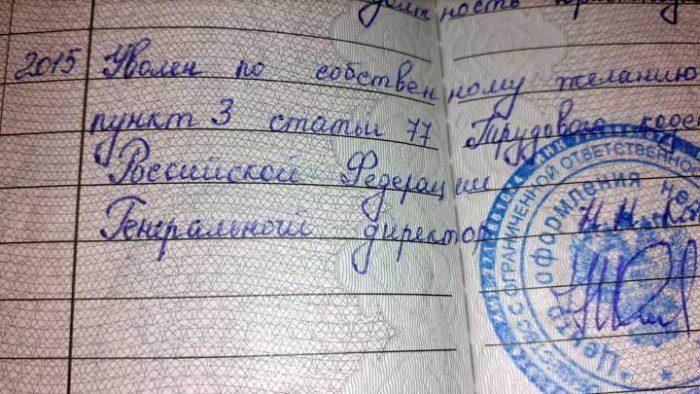 должность юриско
2015 Уволен по собственному желанию
пункт 3 статьи 77 Трудового кодек
Российской Федерации
Генеральный директор
Н.Н. Ка
ОГРАНИЧЕННОЙ ОТВЕТСТВЕННО
"Центр оформления не